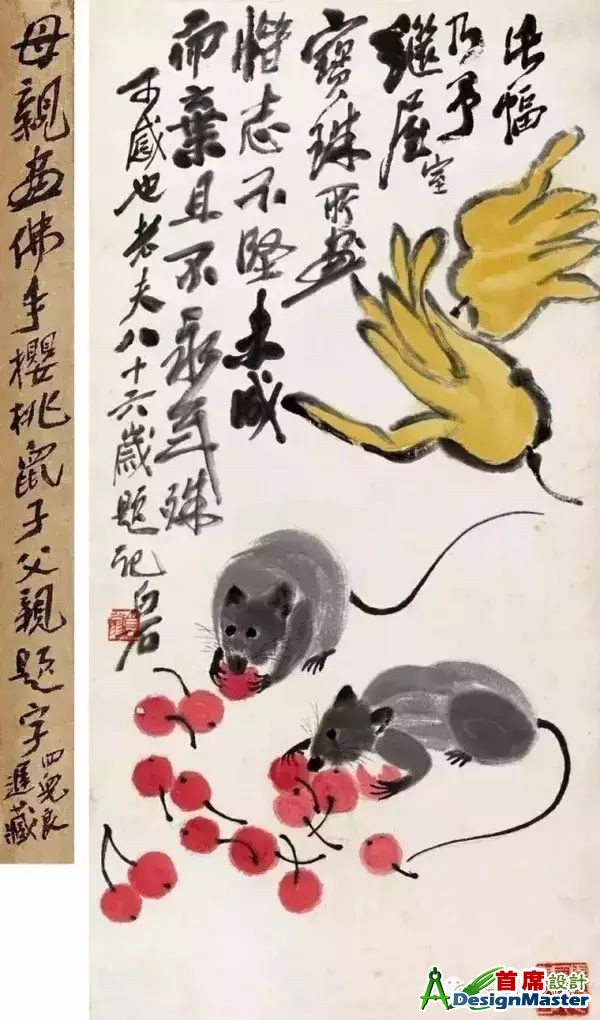 此幅
乃予
繼室
寶珠所畫
惜志不堅未成
而棄且不永年殊
可感也老夫八十六歲題記白石
母親畫佛手櫻桃鼠子父親題字
四兒良
遲藏
首席設計
ADesignMaster